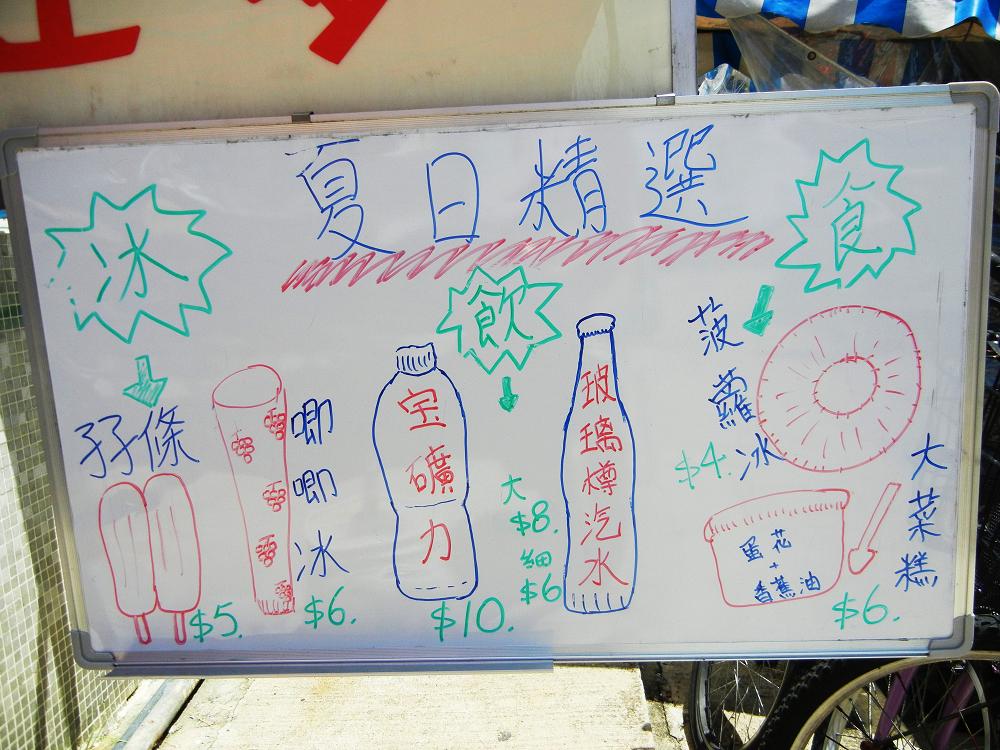 夏日精選
冰
孖條
$5.
唧唧冰
$6.
飲
宝礦力
$10.
玻璃樽汽水
大
$8.
細
$6
食
菠蘿冰
$4.
大菜糕
蛋花
+
香蕉油
$6.